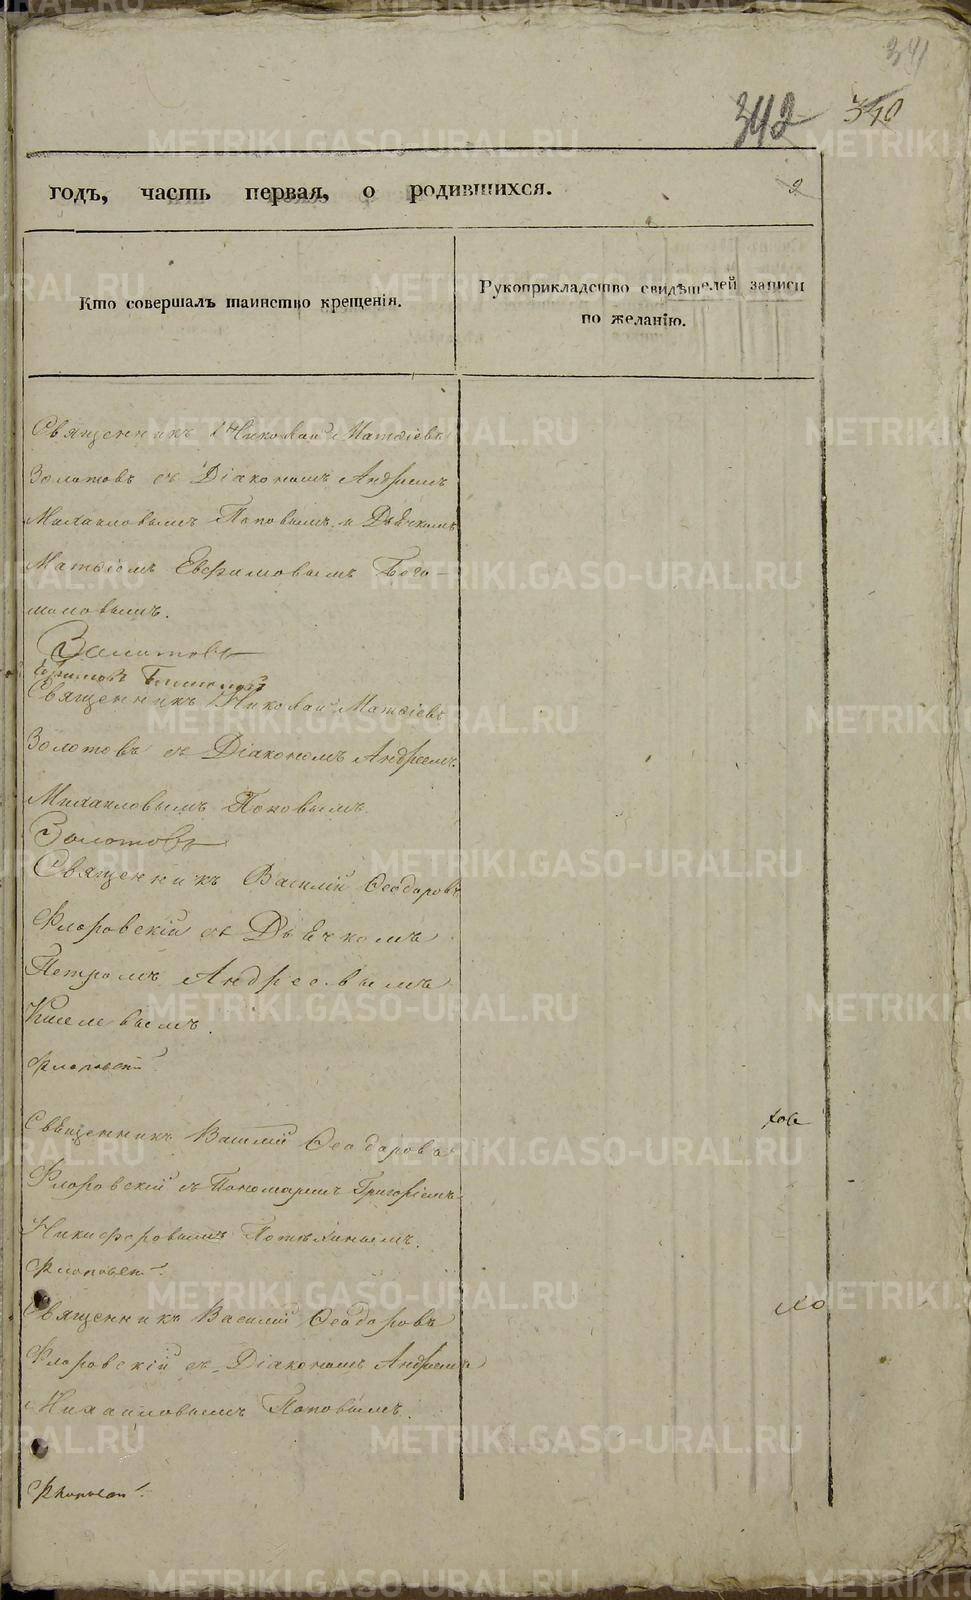 341
342 340
годъ, часть первая, о родившихся. 2
Кто совершалъ таинство крещенія.
Рукоприкладство свидѣтелей записи
по желанію.
Священникъ Николай Матѳіевъ
Золотовъ съ Діакономъ Андреемъ
Михаиловымъ Поповымъ и Дьячкомъ
Матѳіемъ Евфимовымъ Бого-
моловымъ.
Золотовъ
Священникъ Николай Матѳіевъ
Золотовъ съ Діакономъ Андреемъ
Михаиловымъ Поповымъ.
Золотовъ
Священникъ Василій Ѳеодоровъ
Флоровскій съ Дьячкомъ
Петромъ Андреевымъ
Киселевымъ.
Флоровскій
Священникъ Василій Ѳеодоровъ
Флоровскій съ Пономаремъ Григоріемъ
Никифоровымъ
Флоровскій
Священникъ Василій Ѳеодоровъ
Флоровскій съ Діакономъ Андреемъ
Михаиловымъ Поповымъ.
Флоровскій
METRIKI.GASO-URAL.RU